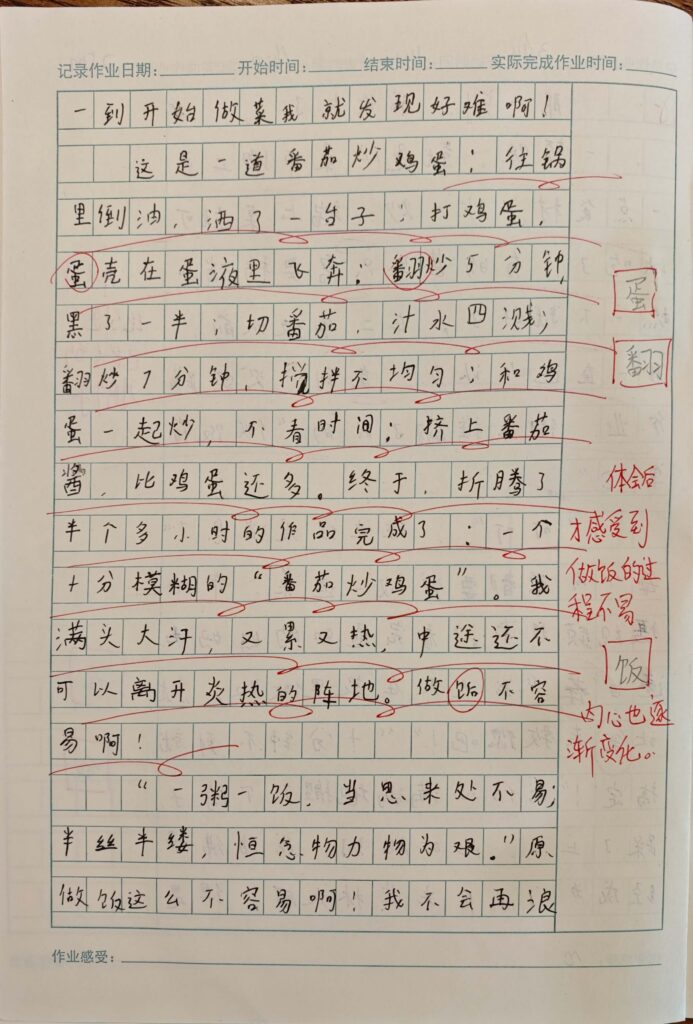 记录作业日期：  开始时间：  结束时间：  实际完成作业时间：
一到开始做菜我就发现好难啊！
这是一道番茄炒鸡蛋：往锅
里倒油，洒了一台子；打鸡蛋，
蛋壳在蛋液里飞奔；翻炒5分钟，
黑了一半；切番茄，汁水四溅；
翻炒7分钟，搅拌不均匀；和鸡
蛋一起炒，不看时间；挤上番茄
酱，比鸡蛋还多。终于，折腾了
半个多小时的作品完成了：一个
十分模糊的“番茄炒鸡蛋”。我
满头大汗，又累又热，中途还不
可以离开炎热的阵地。做饭不容
易啊！
“一粥一饭，当思来处不易；
半丝半缕，恒念物力物为艰。”原
做饭这么不容易啊！我不会再浪
蛋
翻
体会后
才感受到
做饭的过
程不易
饭
内心也逐
渐变化。
作业感受：